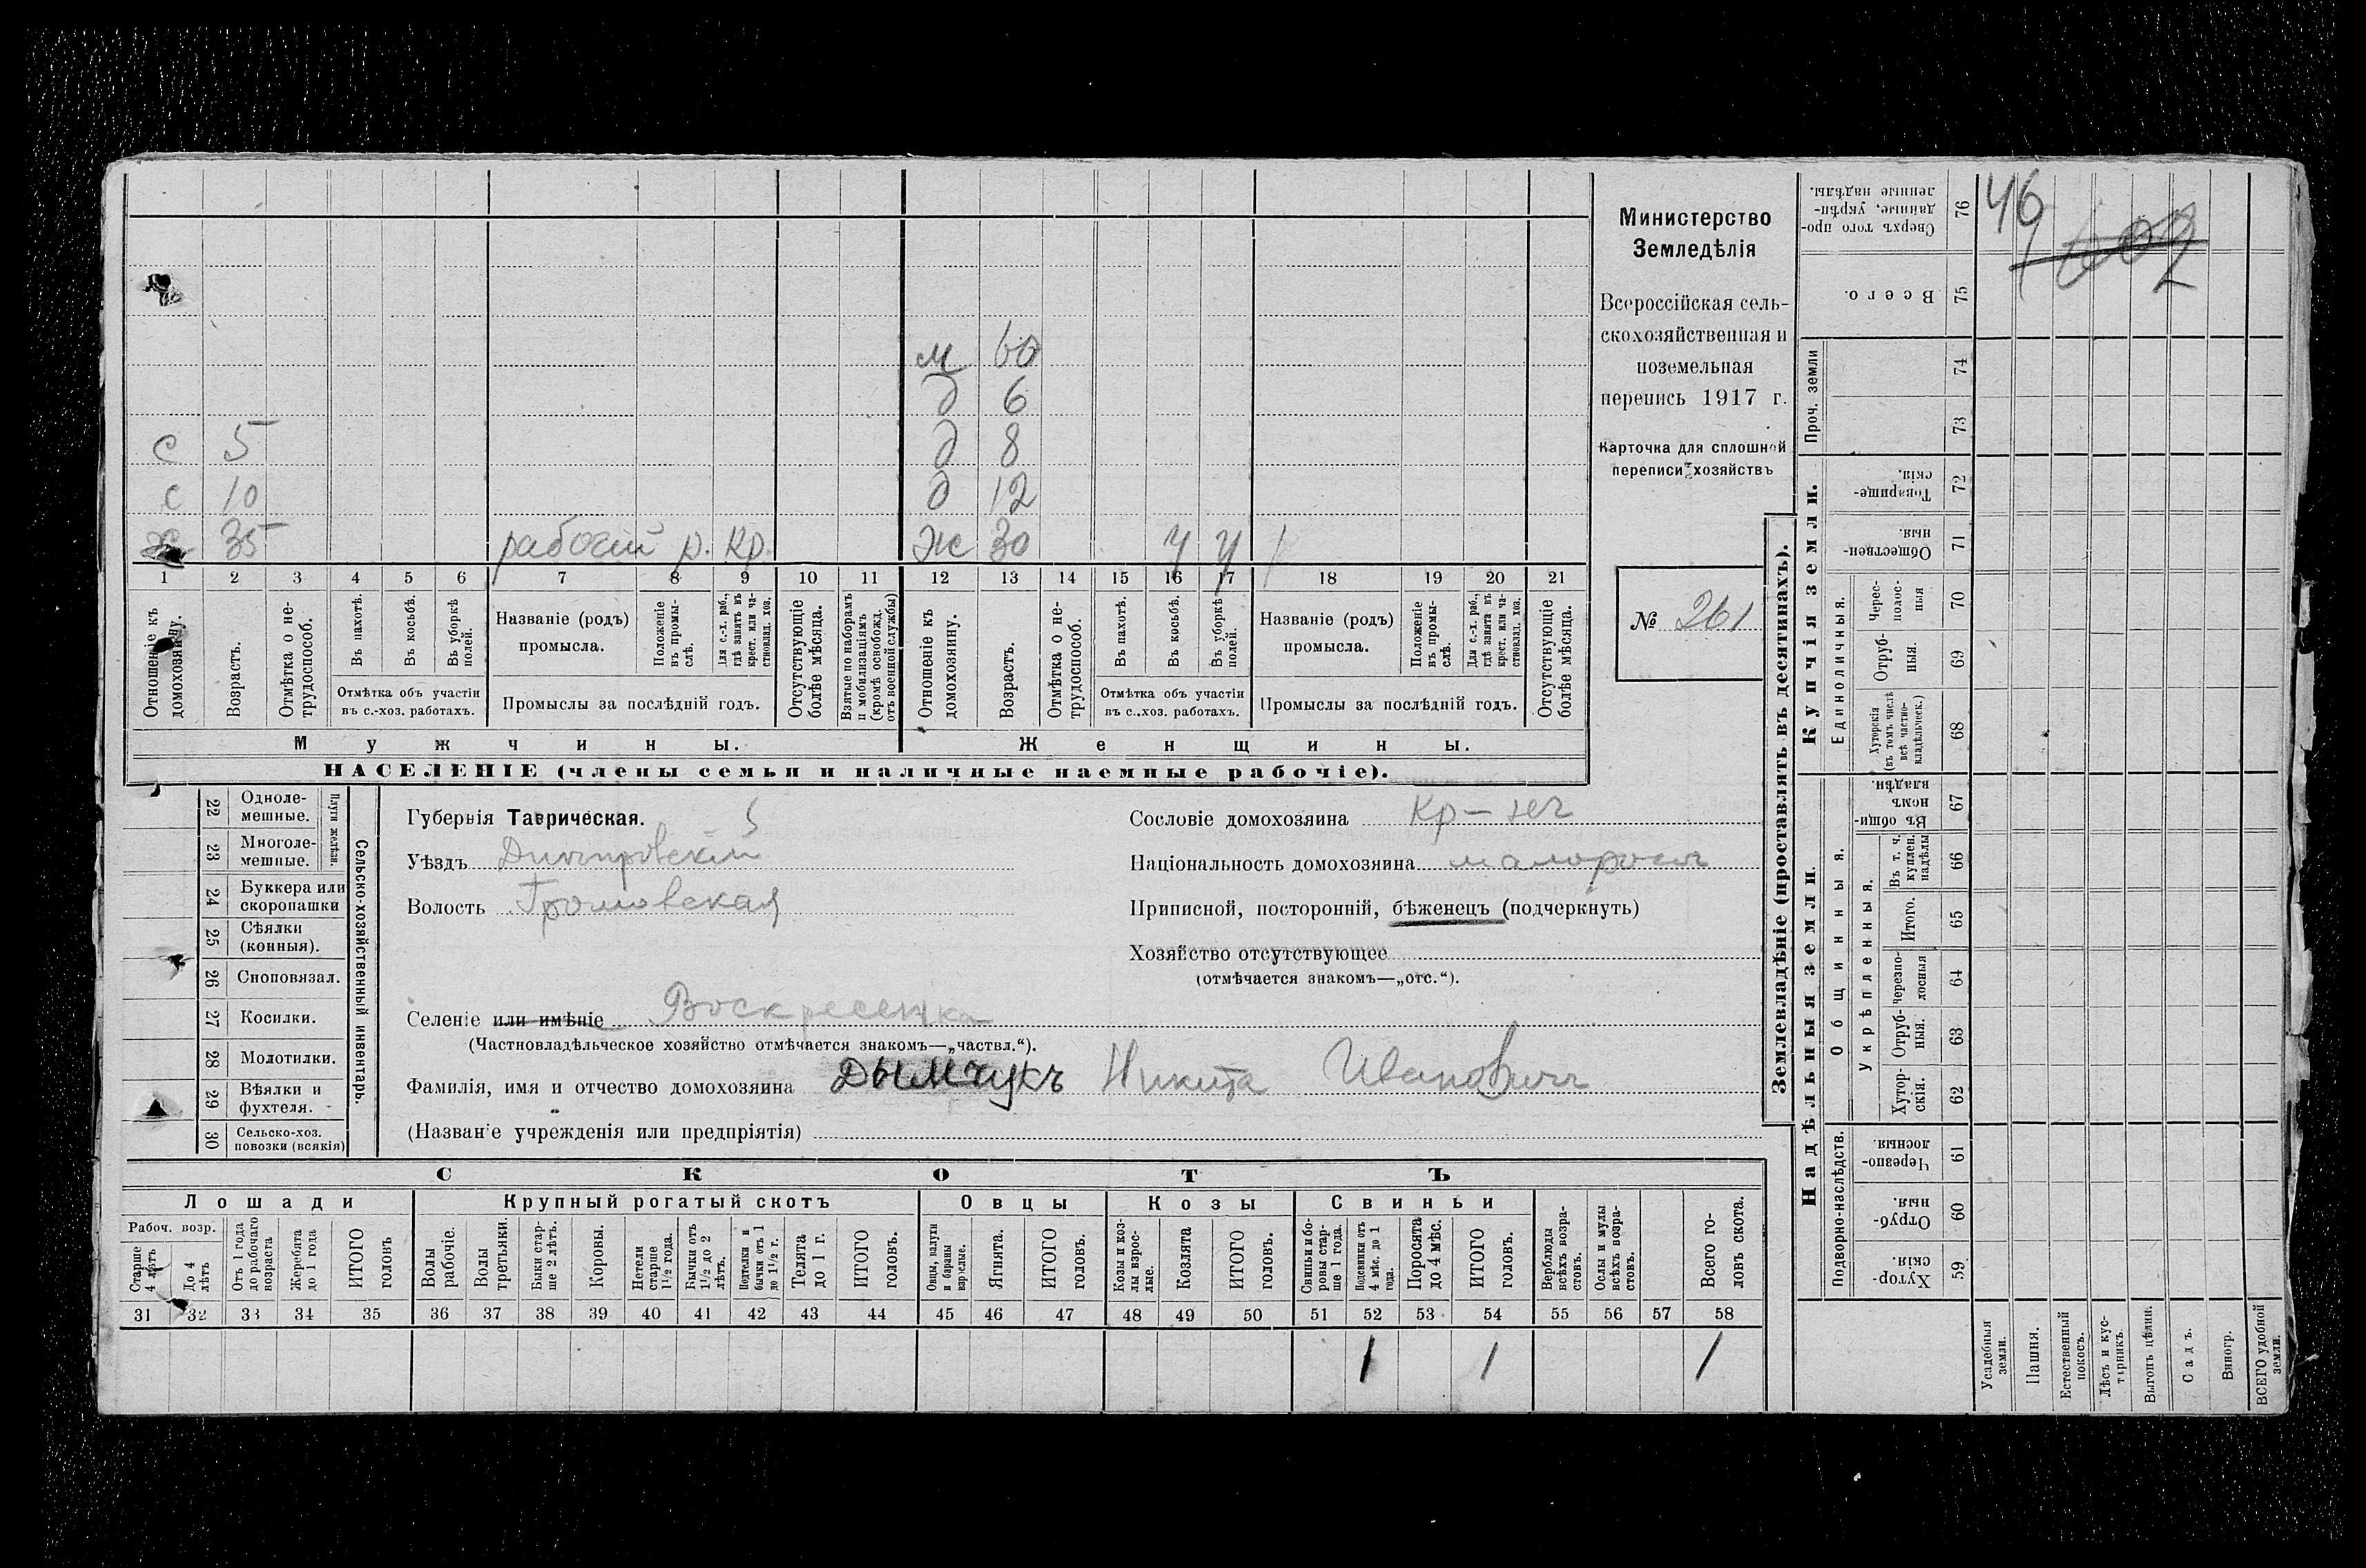 Министерство
Земледѣлія
Всероссійская сель-
скохозяйственная и
поземельная
перепись 1917 г.
Карточка для сплошной
переписи хозяйствъ
№ 261
м 60
д 6
с 5 д 8
с 10 д 12
х 35 рабочій р. кр. ж 30 ч ч
1 2 3 4 5 6 7 8 9 10 11 12 13 14 15 16 17 18 19 20 21
Отношеніе къ домохозяину.
Возрастъ.
Отмѣтка о не-
трудоспособ.
Въ пахотѣ.
Въ косьбѣ.
Въ уборкѣ полей.
Отмѣтка объ участіи
въ с.-хоз. работахъ.
Названіе (родъ)
промысла.
Положеніе въ промы-
слѣ.
Для с.-х. раб., гдѣ занятъ въ крест. или ча-
стновлад. хоз.
Промыслы за послѣдній годъ.
Отсутствующіе
болѣе мѣсяца.
Взятые по наборамъ
и мобилизаціямъ
(кромѣ освобожд.
отъ военной службы)
Отношеніе къ
домохозяину.
Возрастъ.
Отмѣтка о не-
трудоспособ.
Въ пахотѣ.
Въ косьбѣ.
Въ уборкѣ полей.
Отмѣтка объ участіи
въ с.-хоз. работахъ.
Названіе (родъ)
промысла.
Положеніе въ промы-
слѣ.
Для с.-х. раб., гдѣ занята въ крест. или ча-
стновлад. хоз.
Промыслы за послѣдній годъ.
Отсутствующіе
болѣе мѣсяца.
Мужчины.
Женщины.
НАСЕЛЕНІЕ (члены семьи и наличные наемные рабочіе).
22 Одноле-
мешные.
23 Многоле-
мешные.
Плуги желѣзн.
24 Буккера или
скоропашки
25 Сѣялки
(конныя).
26 Сноповязал.
27 Косилки.
28 Молотилки.
29 Вѣялки и
фухтеля.
30 Сельско-хоз.
повозки (всякія)
Сельско-хозяйственный инвентарь.
Губернія Таврическая. 5
Уѣздъ Днѣпровскій
Волость Громовская
Сословіе домохозяина кр-нъ
Національность домохозяина малороссъ
Приписной, посторонній, бѣженецъ (подчеркнуть)
Хозяйство отсутствующее
(отмѣчается знакомъ—„отс.“).
Селеніе или имѣніе Воскресенка
(Частновладѣльческое хозяйство отмѣчается знакомъ—„частвл.“).
Фамилія, имя и отчество домохозяина Дымчукъ Никита Ивановичъ
(Названіе учрежденія или предпріятія)
СКОТЪ
Лошади
Крупный рогатый скотъ
Овцы
Козы
Свиньи
Рабоч. возр.
Старше
4 лѣтъ
До 4
лѣтъ
Отъ 1 года
до рабочаго
возраста
Жеребята
до 1 года
ИТОГО
головъ
Волы
рабочіе.
Волы
третьяки.
Быки стар-
ше 2 лѣтъ.
Коровы.
Нетели
старше
1½ года.
Бычки отъ
1½ до 2
лѣтъ.
Подтелки и
бычки отъ 1
до 1½ г.
Телята
до 1 г.
ИТОГО
головъ.
Овцы, валухи
и бараны
взрослые.
Ягнята.
ИТОГО
головъ.
Козы и коз-
лы взрос-
лые.
Козлята
ИТОГО
головъ.
Свиньи и бо-
ровы стар-
ше 1 года.
Подсвинки отъ
4 мѣс. до 1
года.
Поросята
до 4 мѣс.
ИТОГО
головъ.
Верблюды
всѣхъ возра-
стовъ.
Ослы и мулы
всѣхъ возра-
стовъ.
Всего го-
ловъ скота.
31 32 33 34 35 36 37 38 39 40 41 42 43 44 45 46 47 48 49 50 51 52 53 54 55 56 57 58
1 1 1
Землевладѣніе (проставлять въ десятинахъ).
Надѣльныя земли.
Купчія земли.
Проч. земли
Подворно-наслѣдств.
Общинныя.
Укрѣпленныя.
Единоличныя.
46
602
Сверхъ того про-
данные, укрѣп-
ленные надѣлы. 76
Всего. 75
74
73
Товарище-
скія. 72
Обществен-
ныя. 71
Черес-
полос-
ныя 70
Отруб-
ныя. 69
Хуторскія
(въ томъ числѣ
всѣ частно-
владѣльческ.) 68
Въ общин-
номъ
владѣн. 67
Въ т. ч.
куплен.
надѣлы 66
Итого. 65
Черезпо-
лосныя 64
Отруб-
ныя. 63
Хутор-
скія. 62
Черезпо-
лосныя. 61
Отруб-
ныя. 60
Хутор-
скія. 59
Усадебныя
земли.
Пашня.
Естественный
покосъ.
Лѣсъ и кус-
тарникъ.
Выгонъ цѣлин.
Садъ.
Виногр.
ВСЕГО удобной
земли.